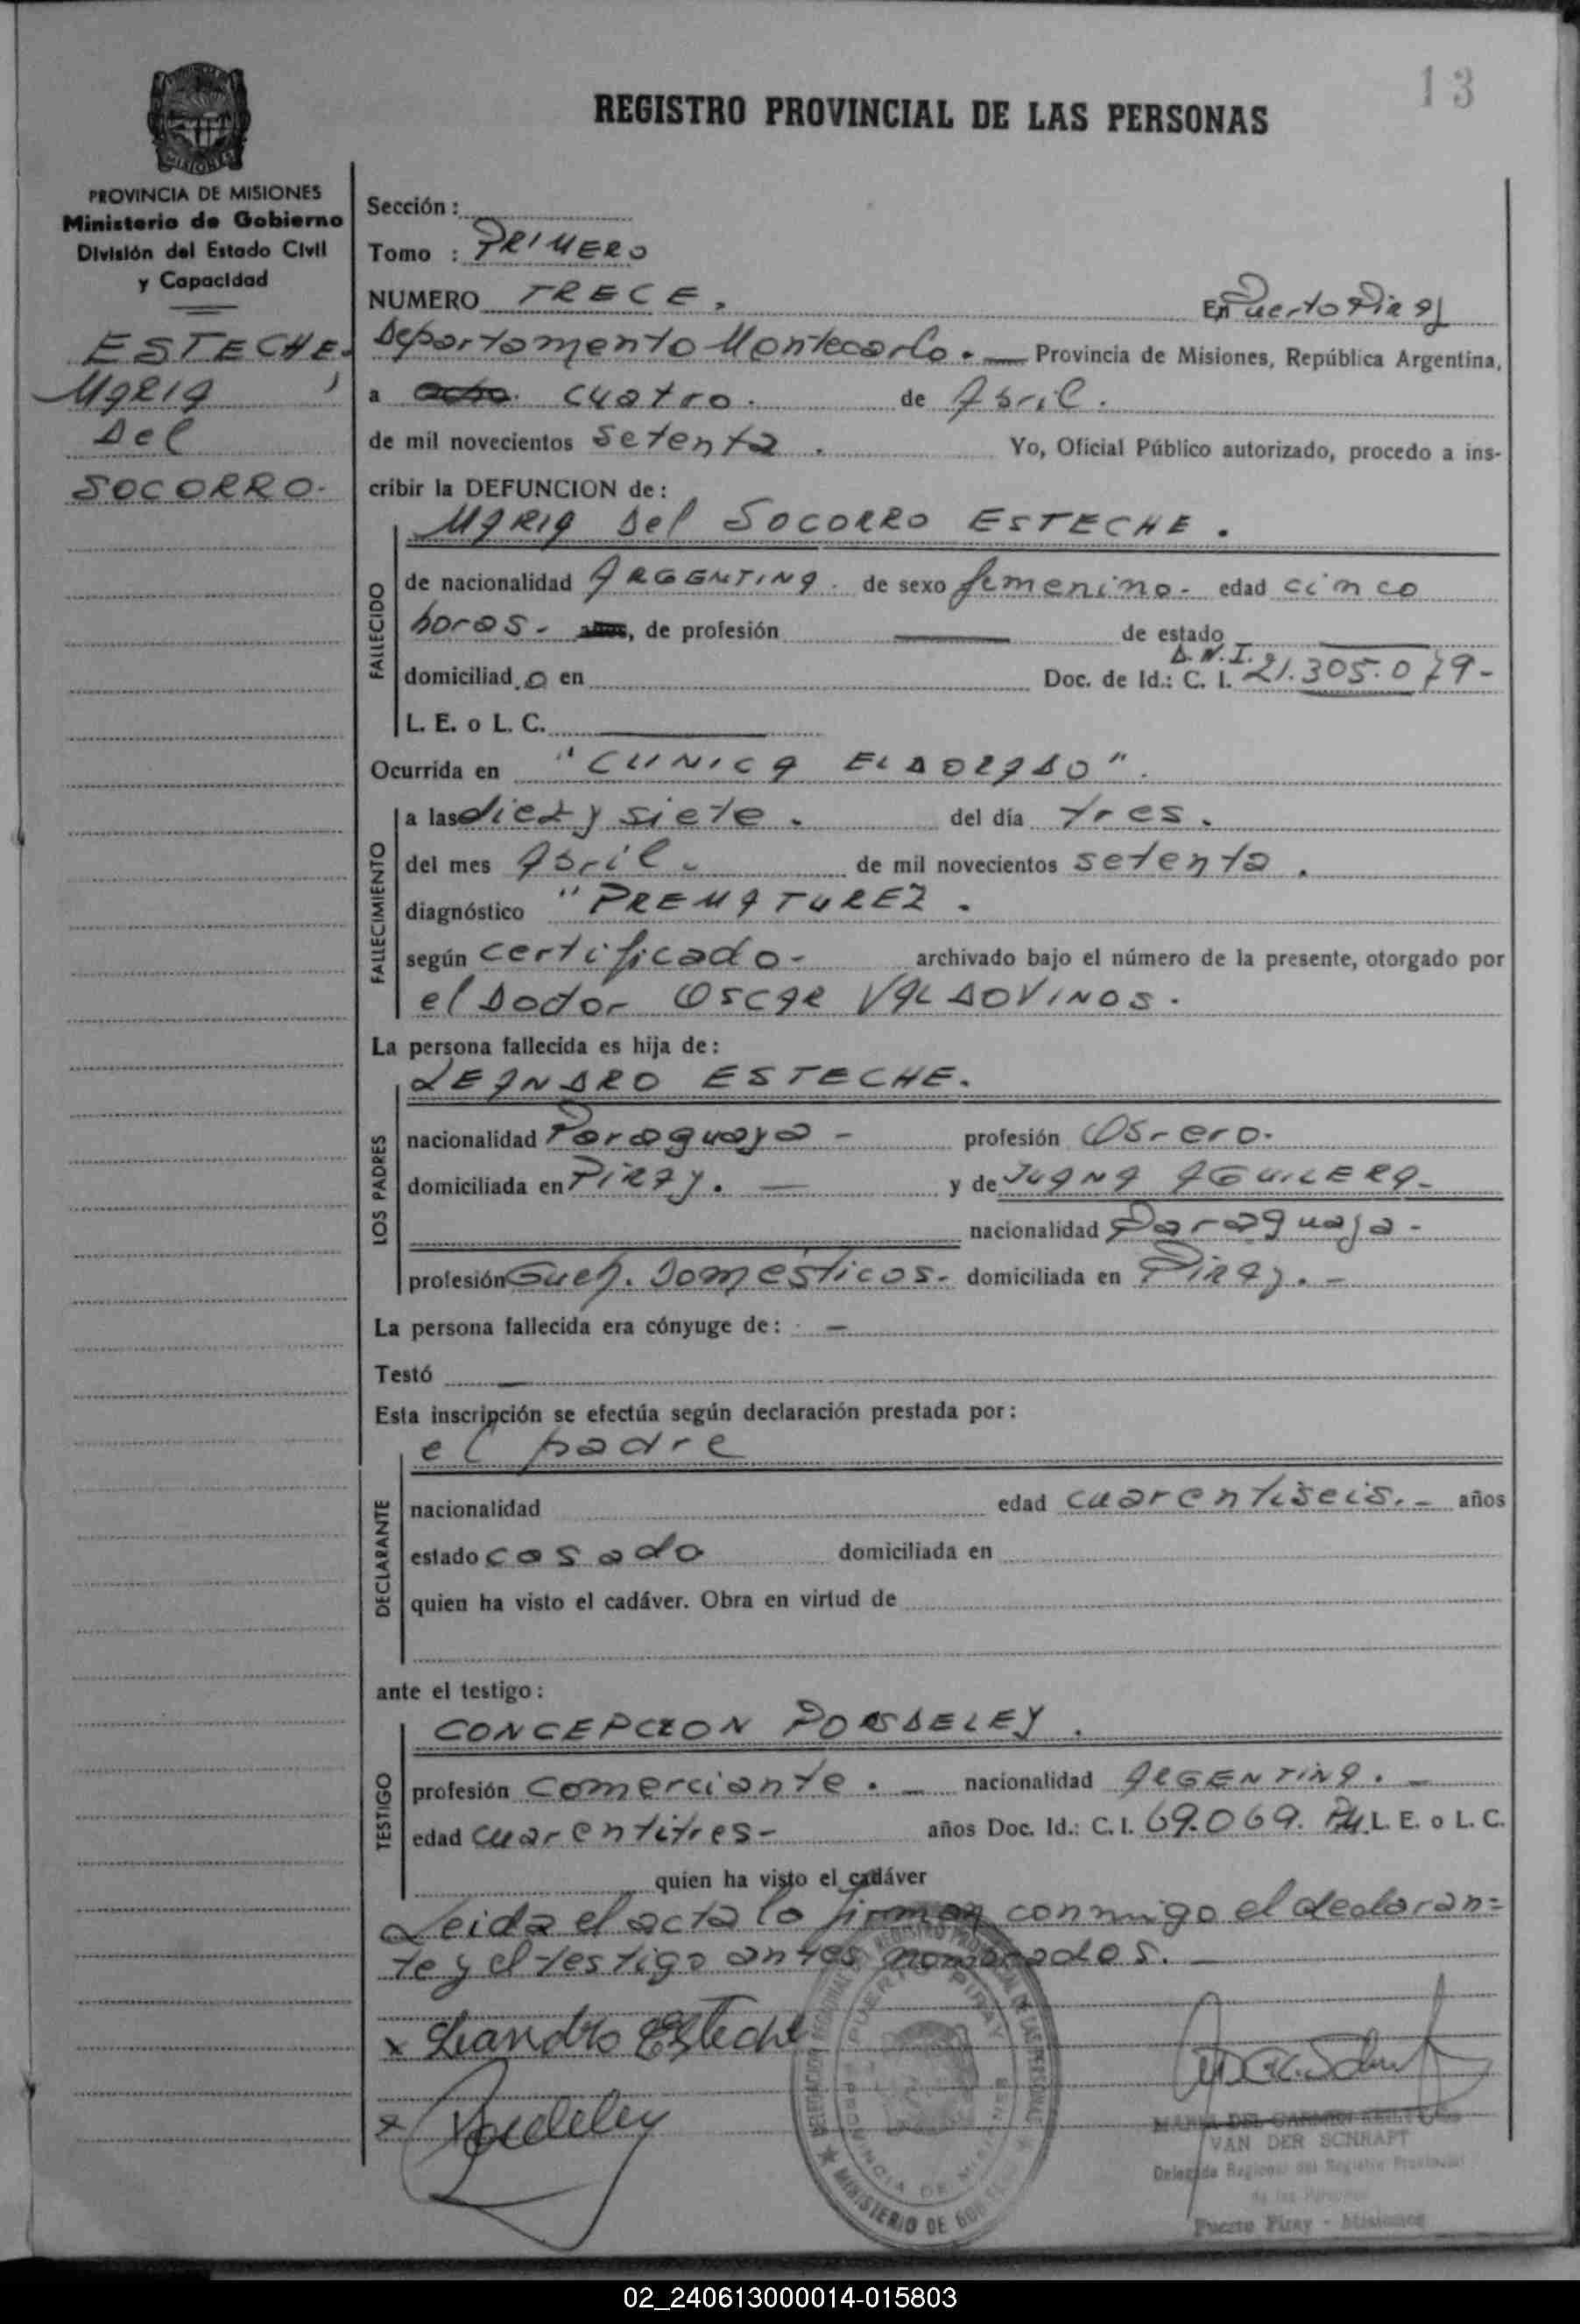 13
REGISTRO PROVINCIAL DE LAS PERSONAS
MISIONES
PROVINCIA DE MISIONES
Ministerio de Gobierno
División del Estado Civil
y Capacidad
ESTECHE,
MARIA
Del
SOCORRO.
Sección :
Tomo : PRIMERO
NUMERO TRECE. En Puerto Piray
Departamento Montecarlo. — Provincia de Misiones, República Argentina,
a cuatro. de Abril.
de mil novecientos setenta. Yo, Oficial Público autorizado, procedo a ins-
cribir la DEFUNCION de :
MARIA Del SOCORRO ESTECHE.
FALLECIDO
de nacionalidad ARGENTINA. de sexo femenino- edad cinco
horas- años, de profesión — de estado —
domiciliad o en Doc. de Id.: C. I. D.N.I. 21.305.079-
L. E. o L. C. —
Ocurrida en "CLINICA ELDORADO".
FALLECIMIENTO
a las diez y siete. del día tres.
del mes Abril. de mil novecientos setenta.
diagnóstico "PREMATUREZ.
según certificado- archivado bajo el número de la presente, otorgado por
el Doctor OSCAR VALDOVINOS.
La persona fallecida es hija de :
LOS PADRES
LEANDRO ESTECHE.
nacionalidad Paraguaya - profesión Obrero.
domiciliada en PIRAY. — y de JUANA AGUILERA-
nacionalidad Paraguaya-
profesión Queh. Domésticos- domiciliada en PIRAY.-
La persona fallecida era cónyuge de : —
Testó —
Esta inscripción se efectúa según declaración prestada por :
DECLARANTE
el padre
nacionalidad edad cuarentiseis.- años
estado casado domiciliada en
quien ha visto el cadáver. Obra en virtud de
ante el testigo :
TESTIGO
CONCEPCION PORDELEY.
profesión Comerciante. - nacionalidad ARGENTINA. -
edad cuarentitres- años Doc. Id.: C. I. 69.069. L. E. o L. C.
quien ha visto el cadáver
Leida el acta la firman conmigo el declaran=
te y el testigo antes nombrados. —
x Leandro Esteche
x
DELEGACION REGIONAL DEL REGISTRO PROVINCIAL DE LAS PERSONAS
PUERTO PIRAY
PROVINCIA DE MISIONES
MINISTERIO DE GOBIERNO
MARIA DEL CARMEN
VAN DER SCHRAFT
Delegada Regional del Registro Provincial
de las Personas
Puerto Piray - Misiones
02_240613000014-015803